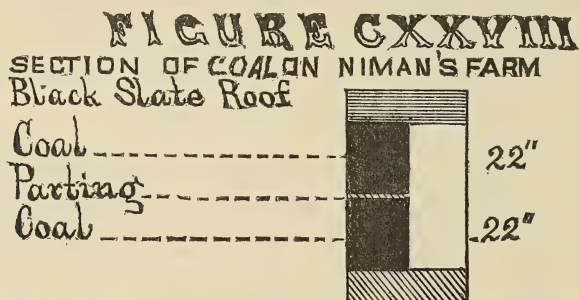 FIGURE CXXVIII
SECTION OF COAL ON NIMAN'S FARM
Black Slate Roof
Coal 22"
Parting
Coal 22"